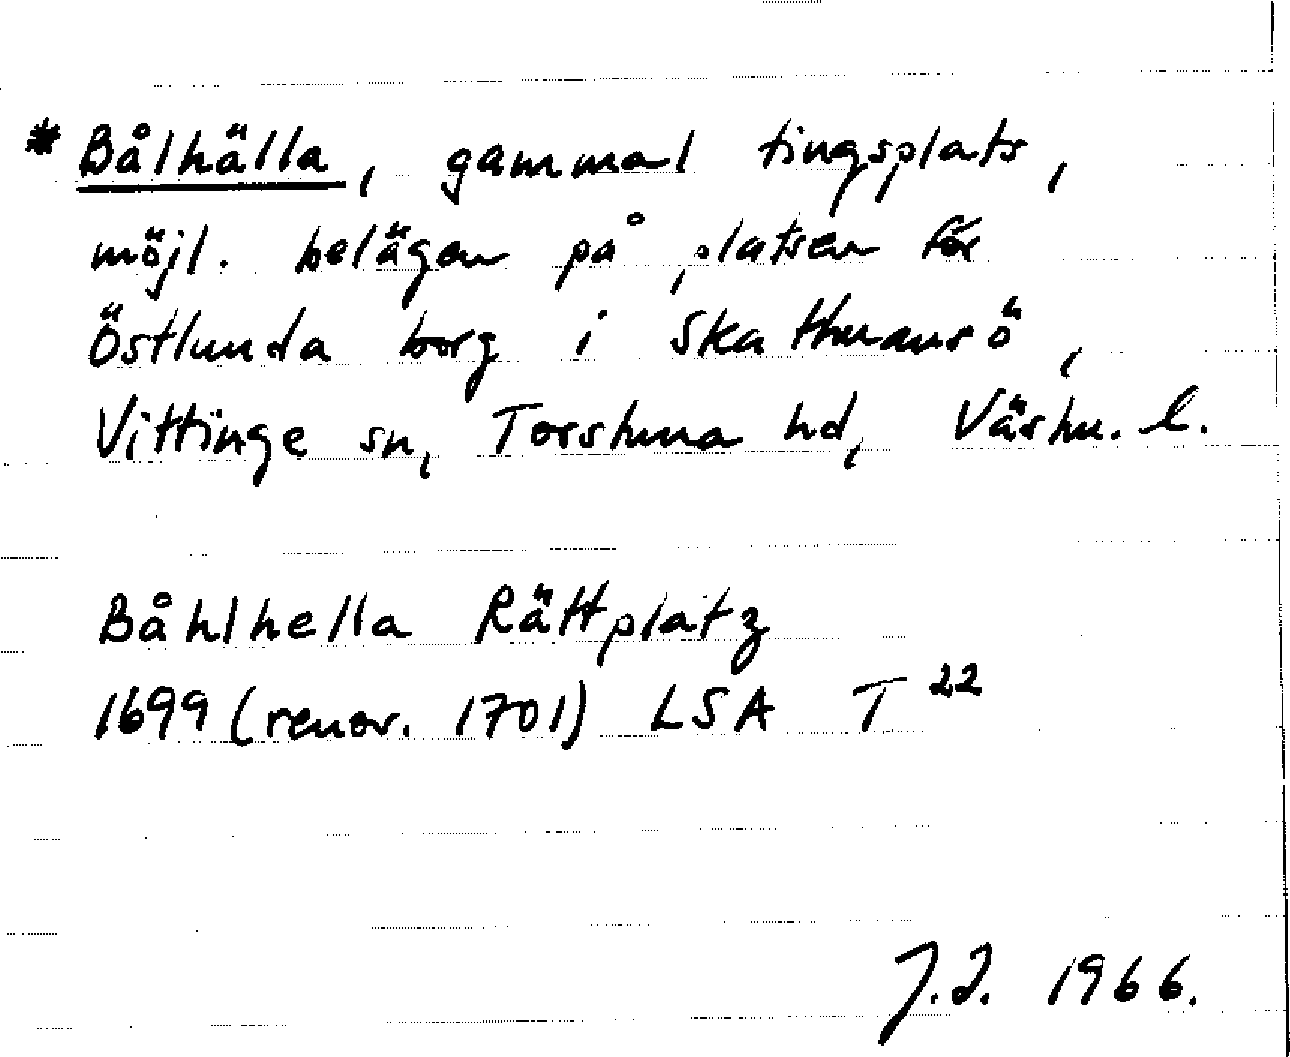 * Bålhälla, gammal tingsplats,
möjl. belägen på platsen för
Östlunda borg i Skattmansö,
Vittinge sn, Torstuna hd, Västm. l.
Båhlhella Rättplatz
1699 (renov. 1701) LSA T 22
J.I. 1966.